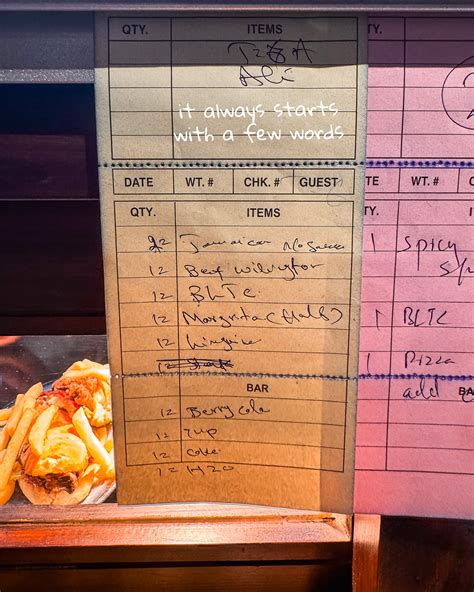 QTY. ITEMS
Ali
it always starts
with a few words
DATE WT. # CHK. # GUEST
QTY. ITEMS
Jamaican No Sauce
12 Beef wilington
12 BLTC
12 Margrita (Half)
12
12
BAR
12 Berry Cola
12 7up
12 Coke
12 H2O
TY.
TE WT. # CHK. #
TY. ITEMS
1 Spicy
1 BLTC
1 Pizza
add
BA